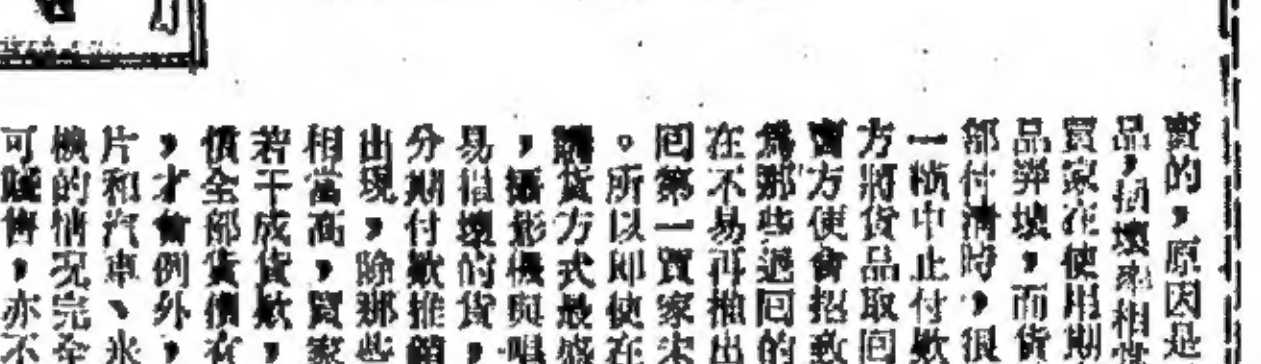 賣的，原因是
品，損壞率相當
買家在使用期
品弄壞，而貨
部付清時，很
一檔中止付欵
方將貨品取回
賣方便會招致
為那些退回的
在不易再推出
回第一買家未
。所以即使在
購貨方式最盛
，攝影機與唱
易損壞的貨，
分期付欵推銷
出現，除那些
相當高，買家
若干成貨欵，
償全部貨價有
，才會例外，
片和汽車、氷
機的情况完全
可賒售，亦不